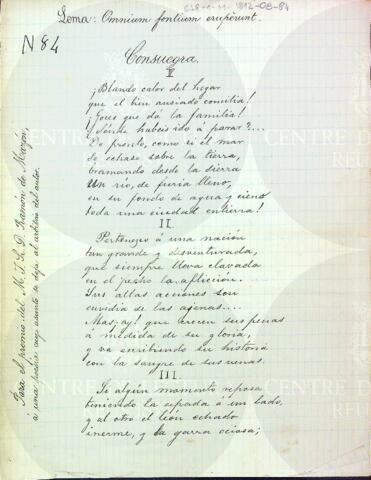 C28-1-11 1892-08-84
Lema: Omnium fontium eruperunt.
N 84
Consuegra.
I
¡Blando calor del hogar
que el bien ansiado concilia!
¡Goces que dá la familia!
¿Dónde habeis ido á parar?....
De pronto, como si el mar
se echase sobre la tierra,
bramando desde la sierra
un río, de furia lleno,
en su fondo de agua y cieno
toda una ciudad entierra!
II.
Pertenezco á una nación
tan grande y desventurada,
que siempre lleva clavada
en el pecho la aflicción.
Sus altas acciones son
envidia de las ajenas....
Mas ¡ay! que crecen sus penas
á medida de su gloria,
y va escribiendo su historia
con la sangre de sus venas.
III.
Si algún momento reposa
teniendo la espada á un lado,
y al otro el león echado
inerme, y la garra ociosa;
Para el premio del M. I. S. D. Ramón de Mazón,
a una poesía cuyo asunto se deja al arbitrio del autor.
CENTRE DE
REU